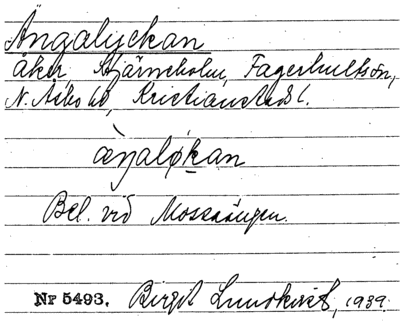 Ängalyckan
åker, Stjärneholm, Fagerhultsön,
N. Åsbo hd, Kristianstads l.
æŋaløkan
Bel. vid Mossaängen.
Nr 5493. Birgit Lundkvist, 1939.